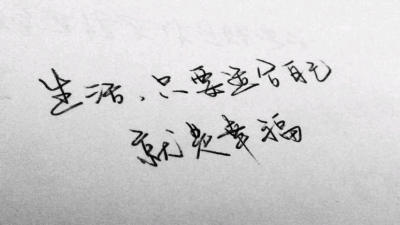 生活，只要适合自己
就是幸福